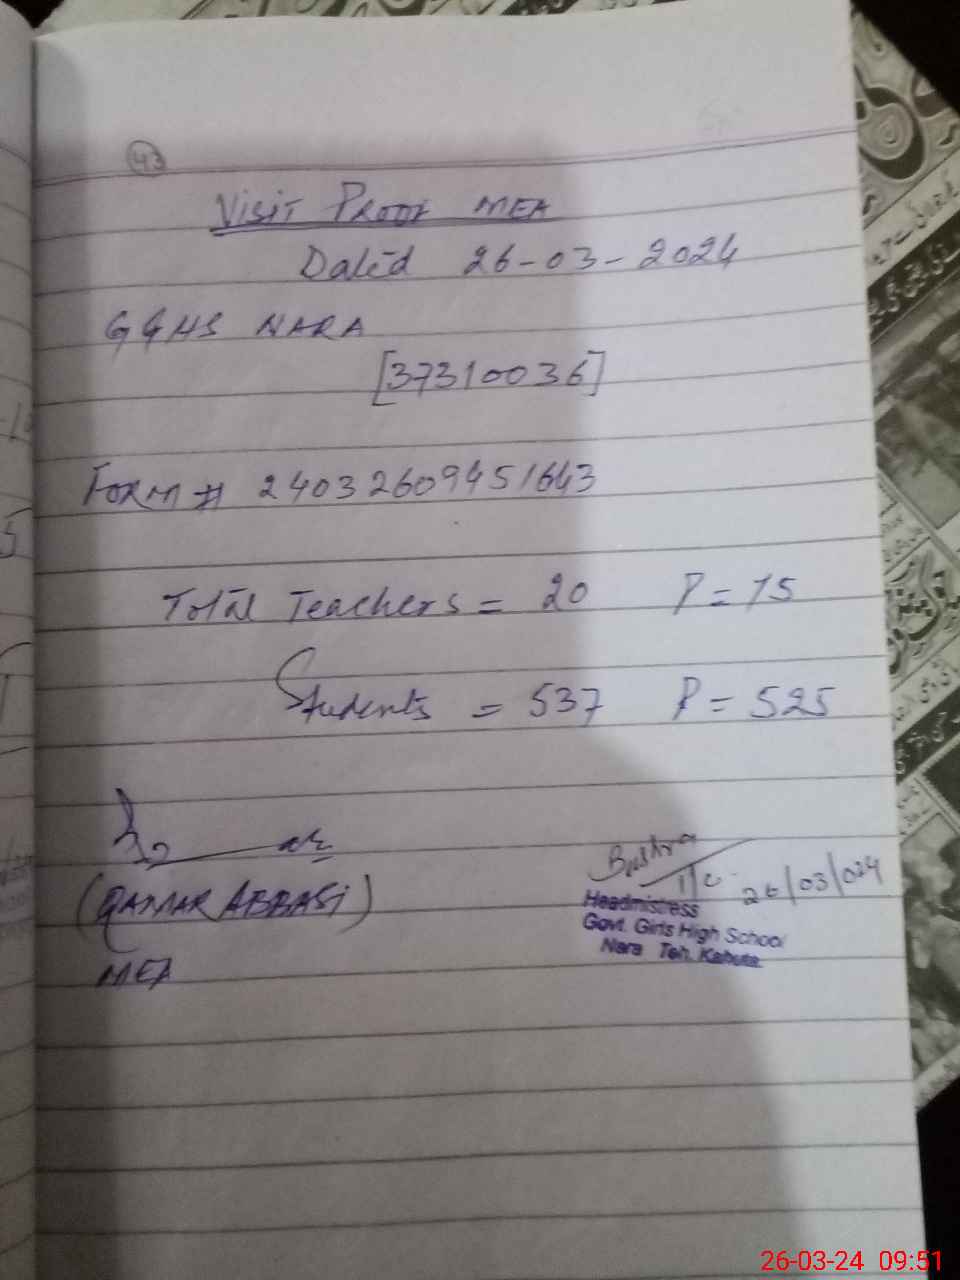 43
Visit Proof MEA
Dated 26-03-2024
GGHS NARA
[37310036]
Form # 24032609451643
Total Teachers = 20 P = 15
Students = 537 P = 525
Bushra
I/C 26/03/024
(QAMAR ABBASI)
Headmistress
Govt. Girls High School
Nara Teh. Kahuta
MEA
26-03-24 09:51